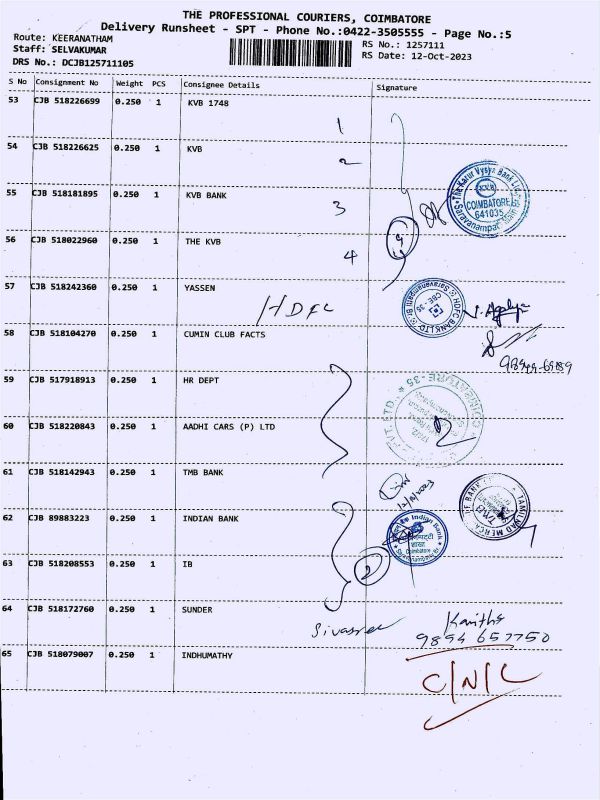 THE PROFESSIONAL COURIERS, COIMBATORE
Delivery Runsheet - SPT - Phone No.:0422-3505555 - Page No.:5
Route: KEERANATHAM
RS No.: 1257111
Staff: SELVAKUMAR
RS Date: 12-Oct-2023
DRS No.: DCJB125711105
S No Consignment No Weight PCS Consignee Details Signature
53 CJB 518226699 0.250 1 KVB 1748
1
54 CJB 518226625 0.250 1 KVB
2
The Karur Vysya Bank Ltd.
K.V.B
COIMBATORE
641035
Saravanampatti
55 CJB 518181895 0.250 1 KVB BANK
3
56 CJB 518022960 0.250 1 THE KVB
4
4
57 CJB 518242360 0.250 1 YASSEN
HDFC
HDFC BANK LTD
CBE-35
58 CJB 518104270 0.250 1 CUMIN CLUB FACTS
59 CJB 517918913 0.250 1 HR DEPT
PVT. LTD.,
COIMBATORE-35
60 CJB 518220843 0.250 1 AADHI CARS (P) LTD
61 CJB 518142943 0.250 1 TMB BANK
TAMILNAD MERCANTILE BANK
62 CJB 89883223 0.250 1 INDIAN BANK
Indian Bank
शाखा
63 CJB 518208553 0.250 1 IB
2
64 CJB 518172760 0.250 1 SUNDER
Sivasree
9894 657750
65 CJB 518079007 0.250 1 INDHUMATHY
C/N/L